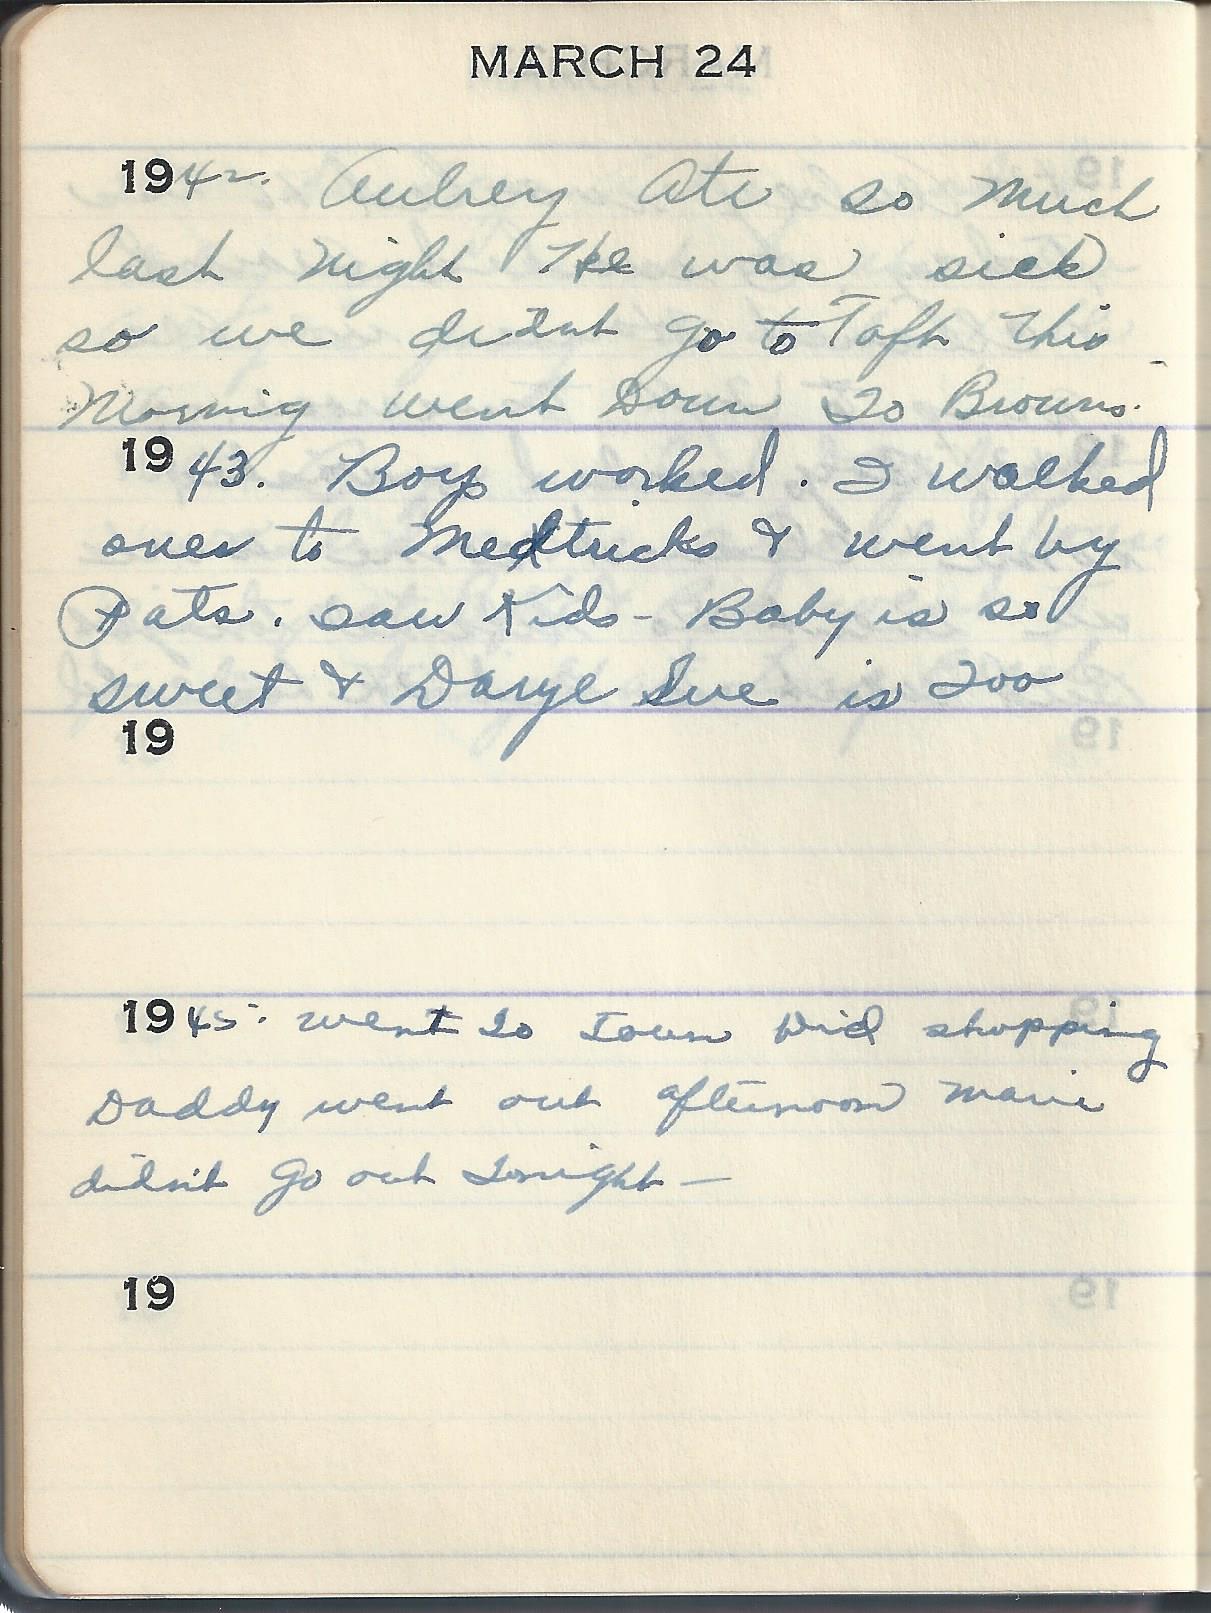 MARCH 24
1942. Aubrey Ate so much
last night He was sick
so we didnt go to Taft this
Morning went Down To Browns.
1943. Boys worked. I walked
over to Medtricks & went by
Pats. saw Kids - Baby is so
sweet & Darye Sue is Too
19
1945. went To Town Did shopping
Daddy went out afternoon Marie
didn't go out Tonight -
19